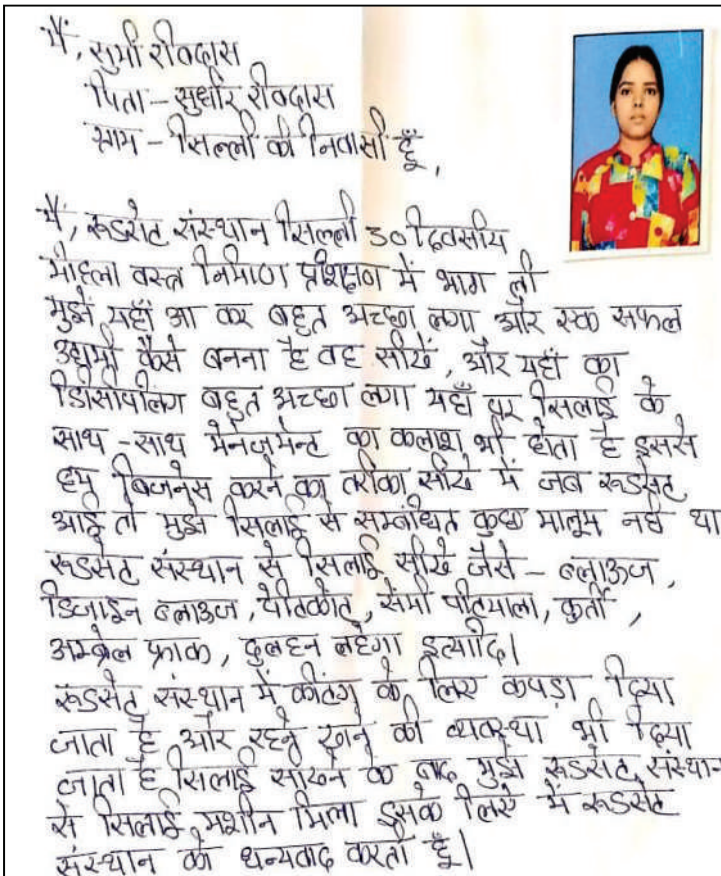 मैं, सुमी रविदास
पिता - सुधीर रविदास
ग्राम - सिल्ली की निवासी हूँ,
मैं, रूडसेट संस्थान सिल्ली 30 दिवसीय
महिला वस्त्र निर्माण प्रशिक्षण में भाग ली
मुझे यहाँ आ कर बहुत अच्छा लगा और एक सफल
उद्यमी कैसे बनना है वह सीखें, और यहाँ का
डिसीपीलिंग बहुत अच्छा लगा यहाँ पर सिलाई के
साथ - साथ मेनेजमेन्ट का कलाश भी होता है इससे
हम बिजनेस करने का तरीका सीखे में जब रूडसेट
आई तो मुझे सिलाई से सम्बंधित कुछ मालूम नहीं था
रूडसेट संस्थान से सिलाई सीखे जैसे - ब्लाऊज,
डिजाइन ब्लाऊज, पेटिकोट, सेमी पटियाला, कुर्ती,
अम्ब्रेल फ्राक, दुलहन लहेगा इत्यादि।
रूडसेट संस्थान में कटिंग के लिए कपड़ा दिया
जाता है और रहने खाने की व्यवस्था भी दिया
जाता है सिलाई सीखने के बाद मुझे रूडसेट संस्थान
से सिलाई मशीन मिला इसके लिए में रूडसेट
संस्थान को धन्यवाद करती हूँ।